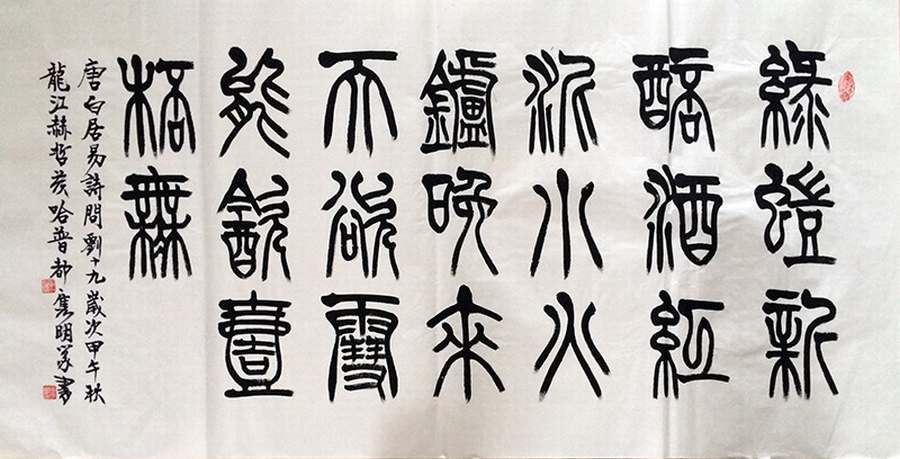 綠螘新
醅酒紅
泥小火
鑪晚來
天欲雪
能飲壹
桮無
唐白居易詩問劉十九歲次甲午秋
龍江赫哲族哈普都雋明篆書